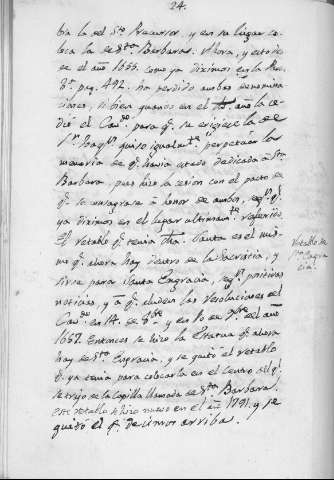 24.
bia la del Sto Precursor, y en su lugar co-
loca la de Sta Barbara. Ahora, y esto des-
de el año 1655. como ya diximos en la
pag. 492. ha perdido ambas denomina
ciones, si bien quando en el dho. año la ce-
dió el Cavdo para q.e se erigiese la de
quiso igualmte perpetuar la
memoria de q.e havia estado dedicada á Sta
Barbara, pues hizo la cesion con el pacto de
q.e se consagrase á honor de ambos, segn q.e
ya diximos en el lugar ultimamte referido.
El retablo q.e tenia dha Santa es el mis-
mo q.e ahora hay dentro de la Sacristia, y
sirve para Santa Engracia, segn positivas
noticias, y á q.e aluden las resoluciones del
Cavdo en 14. de 8bre y en 10 de 9bre del año
1657. Entonces se hizo la Estatua q.e ahora
hay de Sta Engracia, y se quitó el retablo
q.e ya tenia para colocarla en el centro del q.e
se trajo de la Capilla llamada de Sta Barbara.
este retablo se hizo nuevo en el año 1791. y se
quitó el q.e decimos arriba.
Retablo de
Sta Engra
cia.